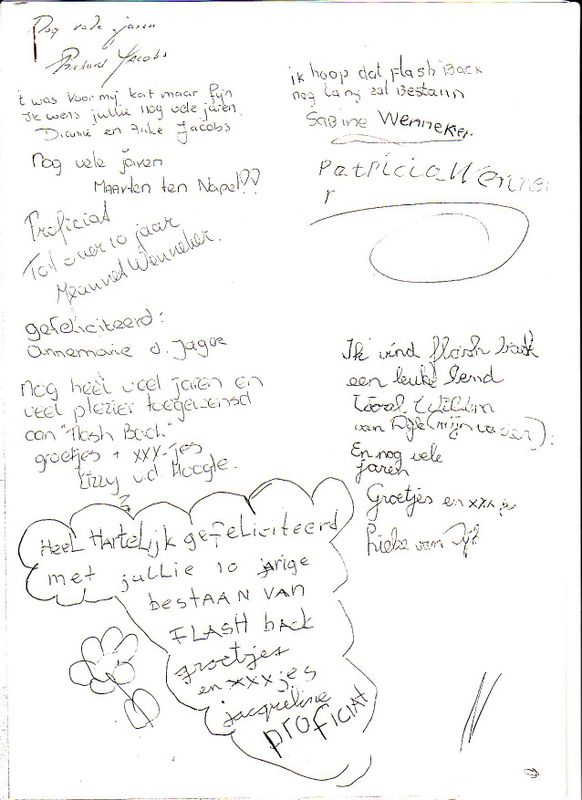 Nog vele jaren
Richard Jacobs
't was voor mij kat maar fijn
Ik wens jullie nog vele jaren.
Dianne en Jacobs
Nog vele jaren
Maarten ten Napel
Proficiat
Tot over 10 jaar
Jeannet Wenneker.
gefeliciteerd:
Annemarie d. Jague
Nog heel veel jaren en
veel plezier toegewensd
aan "Flash Back."
groetjes + xxx-jes
Lizzy v.d. Hoogle.
Heel Hartelijk gefeliciteerd
met jullie 10 jarige
bestaan van
Flash back
groetjes
en xxxjes
jacqueline
proficiat
ik hoop dat Flash Back
nog lang zal bestann
Sabine Wenneker
Patricia Wenneke
r
Ik vind flash back
een leuke bend
Vooral Willem
van Dijk (mijn vader).
En nog vele
jaren
Groetjes en xxx jes
Lieke van Dijk